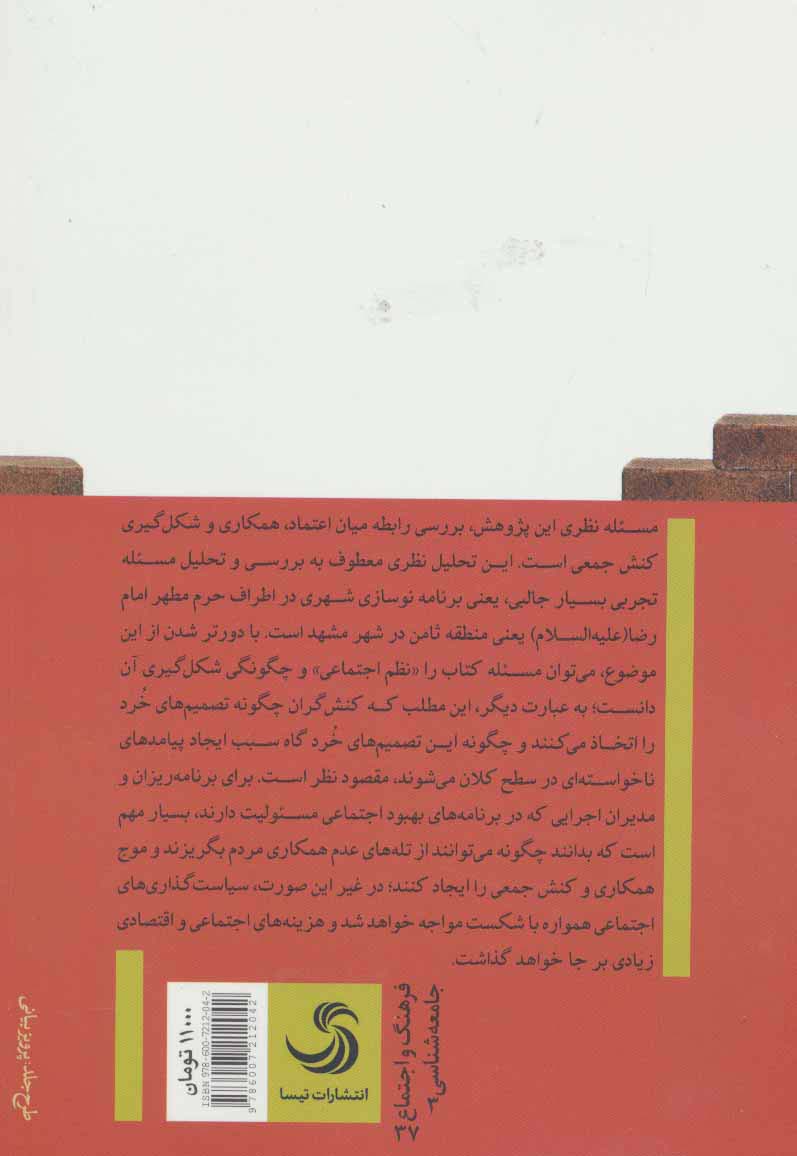 مسئله نظری این پژوهش، بررسی رابطه میان اعتماد، همکاری و شکل‌گیری
کنش جمعی است. این تحلیل نظری معطوف به بررسی و تحلیل مسئله
تجربی بسیار جالبی، یعنی برنامه نوسازی شهری در اطراف حرم مطهر امام
رضا(علیه‌السلام) یعنی منطقه ثامن در شهر مشهد است. با دورتر شدن از این
موضوع، می‌توان مسئله کتاب را «نظم اجتماعی» و چگونگی شکل‌گیری آن
دانست؛ به عبارت دیگر، این مطلب که کنش‌گران چگونه تصمیم‌های خُرد
را اتخاذ می‌کنند و چگونه این تصمیم‌های خُرد گاه سبب ایجاد پیامدهای
ناخواسته‌ای در سطح کلان می‌شوند، مقصود نظر است. برای برنامه‌ریزان و
مدیران اجرایی که در برنامه‌های بهبود اجتماعی مسئولیت دارند، بسیار مهم
است که بدانند چگونه می‌توانند از تله‌های عدم همکاری مردم بگریزند و موج
همکاری و کنش جمعی را ایجاد کنند؛ در غیر این صورت، سیاست‌گذاری‌های
اجتماعی همواره با شکست مواجه خواهد شد و هزینه‌های اجتماعی و اقتصادی
زیادی بر جا خواهد گذاشت.
فرهنگ و اجتماع ۳۷
جامعه‌شناسی ۴
انتشارات تیسا
۱۱۰۰۰ تومان
ISBN 978-600-7212-04-2
9 786007 212042
طرح جلد: پرویز بیانی